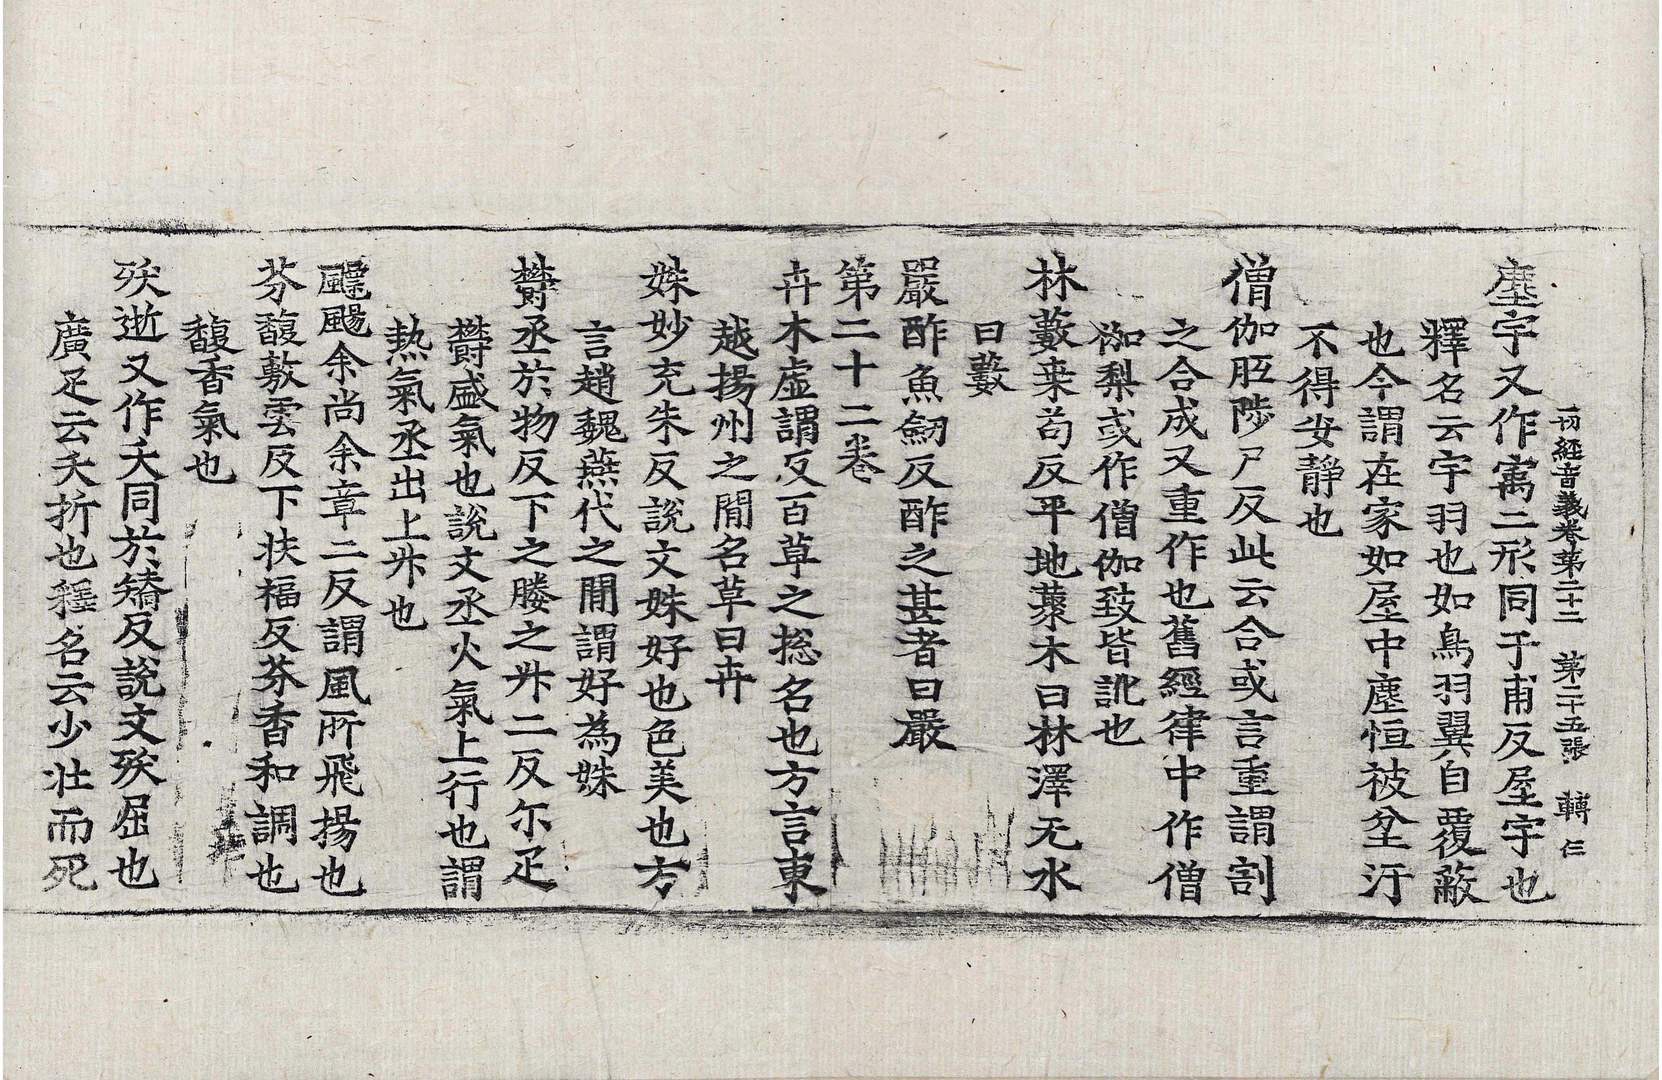 一切經音義卷第二十三　第二十五張　轉　仁
塵宇又作㝢二形同于甫反屋宇也
釋名云宇羽也如鳥羽翼自覆蔽
也今謂在家如屋中塵恒被坌汙
不得安靜也
僧伽胝陟尸反此云合或言重謂割
之合成又重作也舊經律中作僧
伽梨或作僧伽致皆訛也
林藪桒苟反平地藂木曰林澤无水
曰藪
嚴酢魚劒反酢之甚者曰嚴
第二十二卷
卉木虛謂反百草之捴名也方言東
越揚州之閒名草曰卉
姝妙充朱反說文姝好也色美也方
言趙魏燕代之閒謂好為姝
欝烝於物反下之媵之升二反尒疋
欝盛氣也說文烝火氣上行也謂
熱氣烝出上升也
飄颺余尚余章二反謂風所飛揚也
芬馥敷雲反下扶福反芬香和調也
馥香氣也
殀逝又作夭同於矯反說文殀屈也
廣疋云夭折也釋名云少壯而死